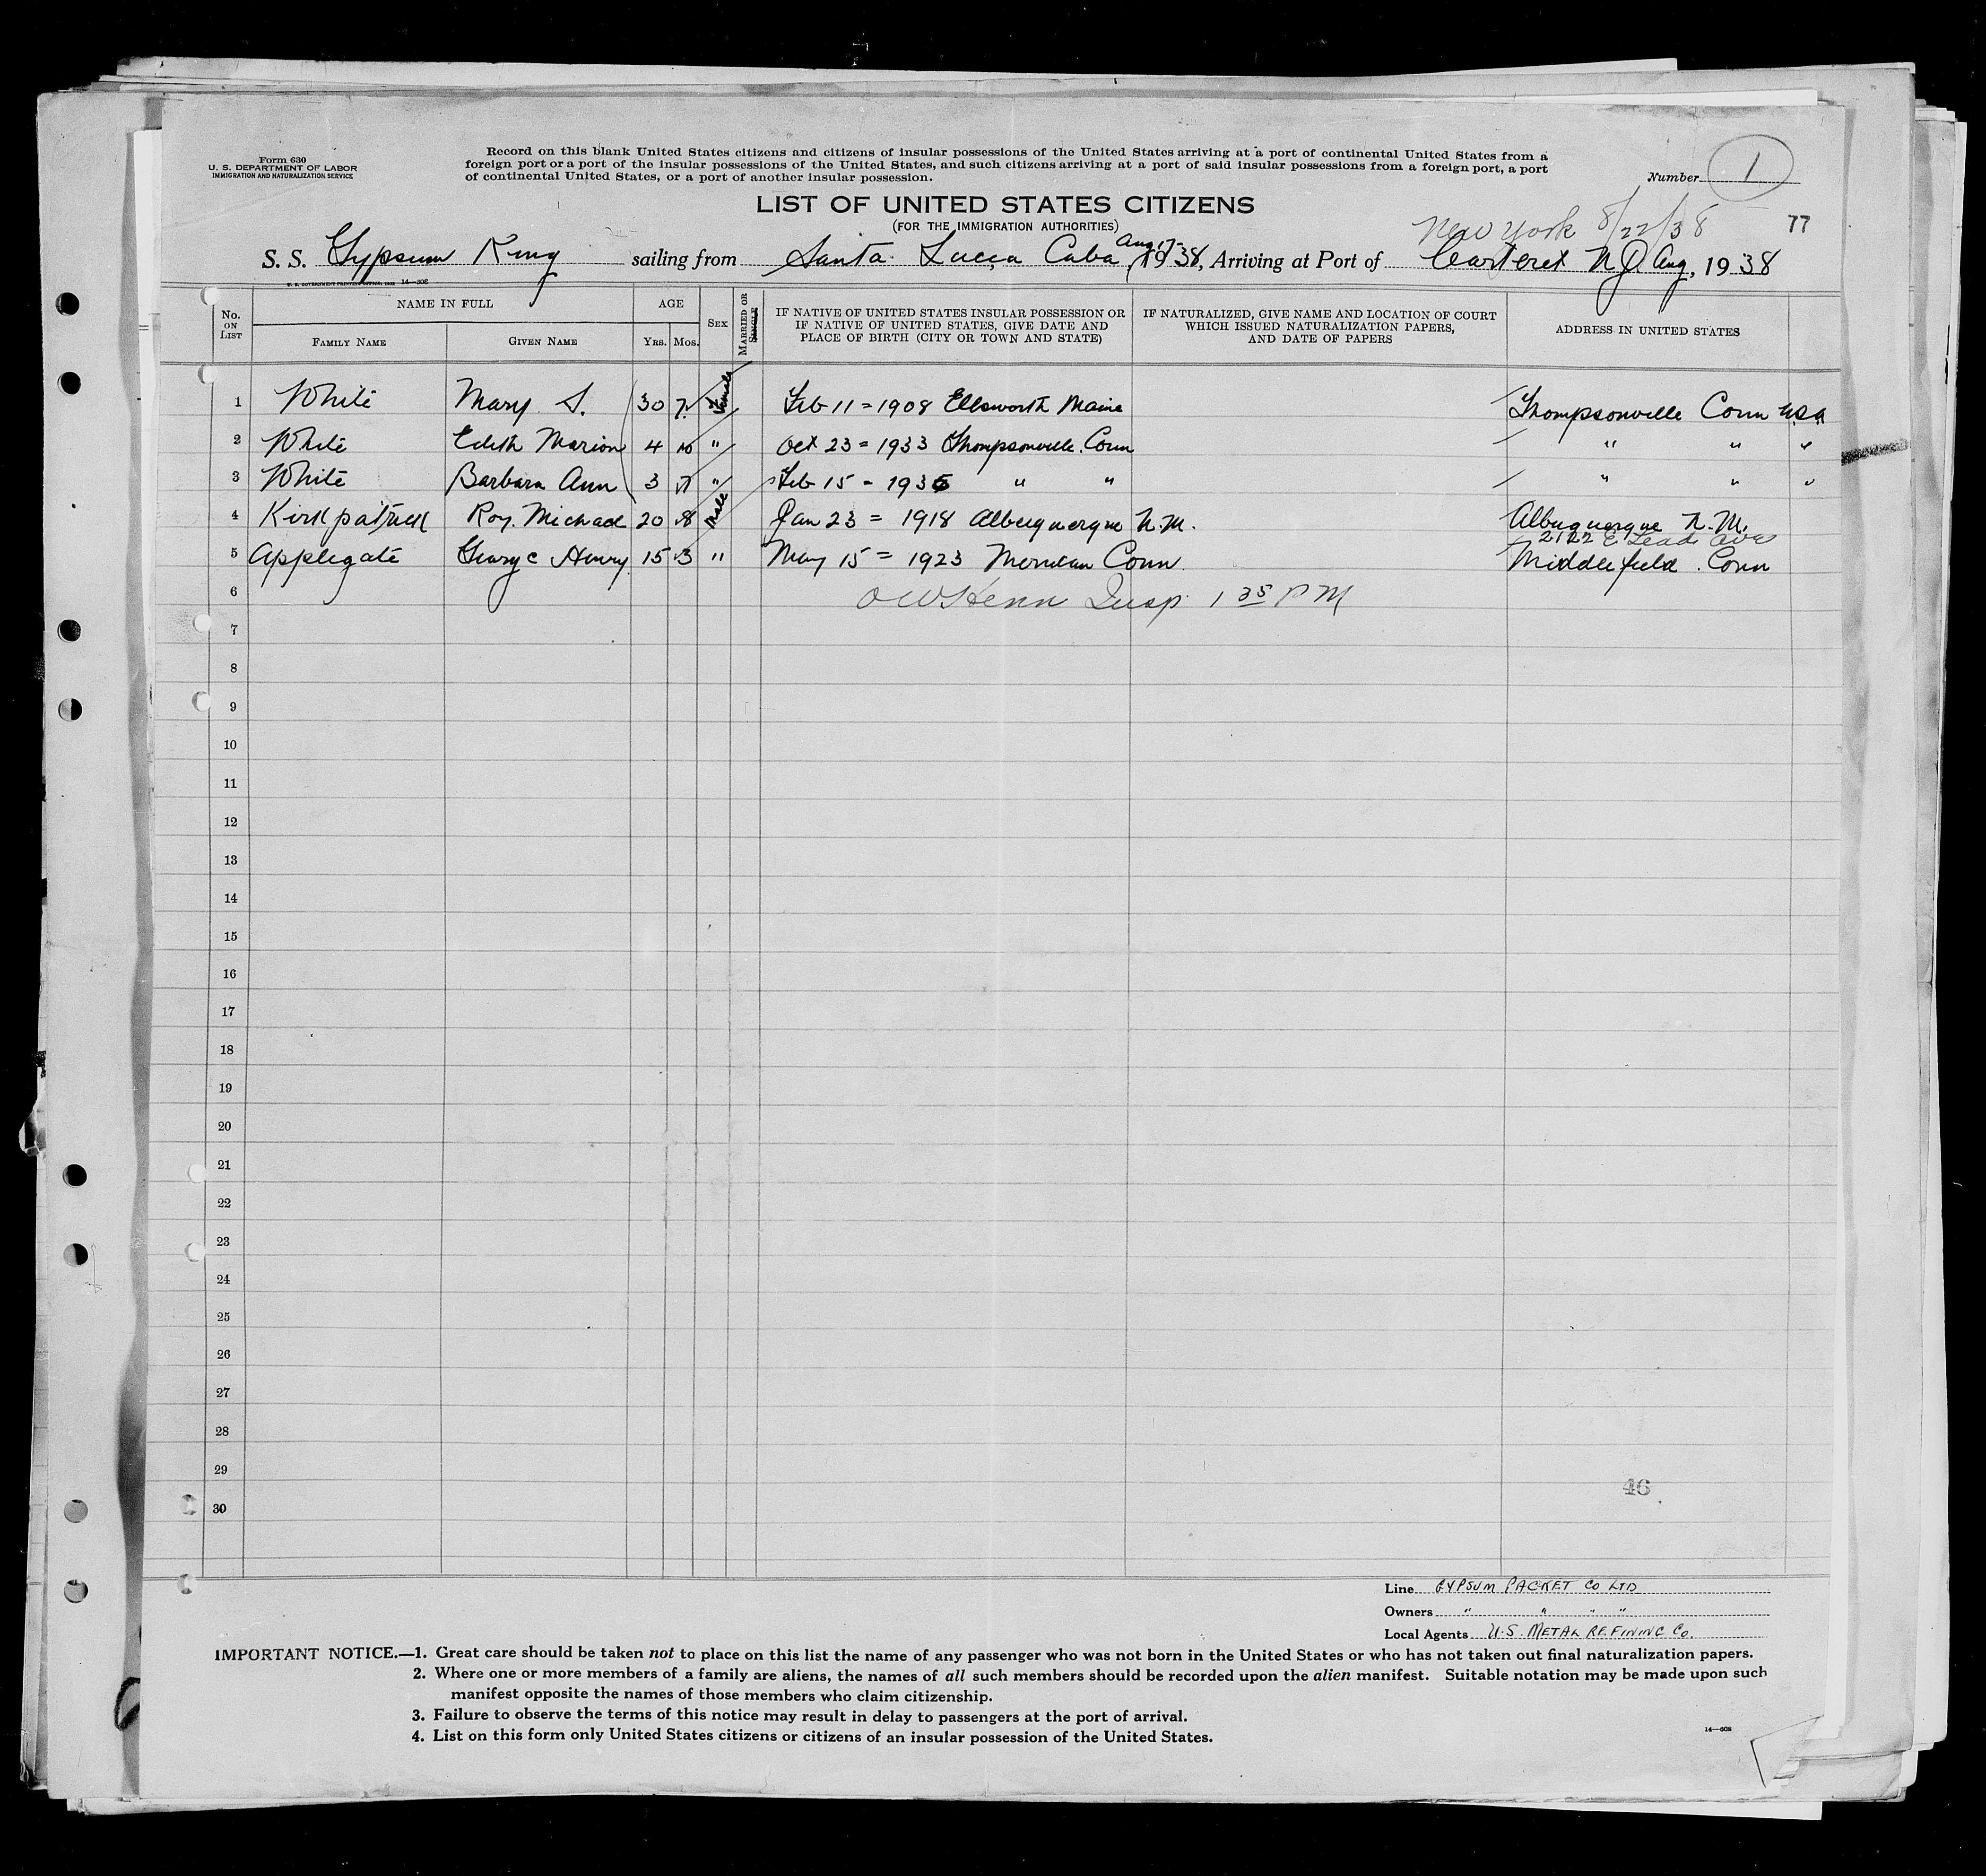 Form 630
U. S. DEPARTMENT OF LABOR
IMMIGRATION AND NATURALIZATION SERVICE
Record on this blank United States citizens and citizens of insular possessions of the United States arriving at a port of continental United States from a
foreign port or a port of the insular possessions of the United States, and such citizens arriving at a port of said insular possessions from a foreign port, a port
of continental United States, or a port of another insular possession.
Number 1
LIST OF UNITED STATES CITIZENS
(FOR THE IMMIGRATION AUTHORITIES)
New York 8/22/38
77
S. S. Gypsum King sailing from Santa Lucia Cuba, Aug 17- 1938, Arriving at Port of Carteret N.J. Aug, 1938
U. S. GOVERNMENT PRINTING OFFICE: 14—608
No. ON LIST
NAME IN FULL
FAMILY NAME
GIVEN NAME
AGE
YRS. MOS.
SEX
MARRIED OR SINGLE
IF NATIVE OF UNITED STATES INSULAR POSSESSION OR
IF NATIVE OF UNITED STATES, GIVE DATE AND
PLACE OF BIRTH (CITY OR TOWN AND STATE)
IF NATURALIZED, GIVE NAME AND LOCATION OF COURT
WHICH ISSUED NATURALIZATION PAPERS,
AND DATE OF PAPERS
ADDRESS IN UNITED STATES
1 White Mary S. 30 7 Female Feb 11=1908 Ellsworth Maine Thompsonville Conn U.S.A
2 White Edith Marion 4 10 " Oct 23=1933 Thompsonville. Conn " " "
3 White Barbara Ann 3 " Feb 15-1935 " " " " "
4 Kirkpatrick Roy. Michael 20 8 Male Jan 23=1918 Albuquerque N.M. Albuquerque N.M.
2122 E Lead Ave
5 Applegate Henry 15 3 " May 15=1923 Meridan Conn. Middlefield. Conn
6 Insp. 1 35 PM
7
8
9
10
11
12
13
14
15
16
17
18
19
20
21
22
23
24
25
26
27
28
29
30
46
Line GYPSUM PACKET CO LTD
Owners " " " "
Local Agents U.S. METAL REFINING Co.
IMPORTANT NOTICE.—1. Great care should be taken not to place on this list the name of any passenger who was not born in the United States or who has not taken out final naturalization papers.
2. Where one or more members of a family are aliens, the names of all such members should be recorded upon the alien manifest. Suitable notation may be made upon such
manifest opposite the names of those members who claim citizenship.
3. Failure to observe the terms of this notice may result in delay to passengers at the port of arrival.
4. List on this form only United States citizens or citizens of an insular possession of the United States.
14—608